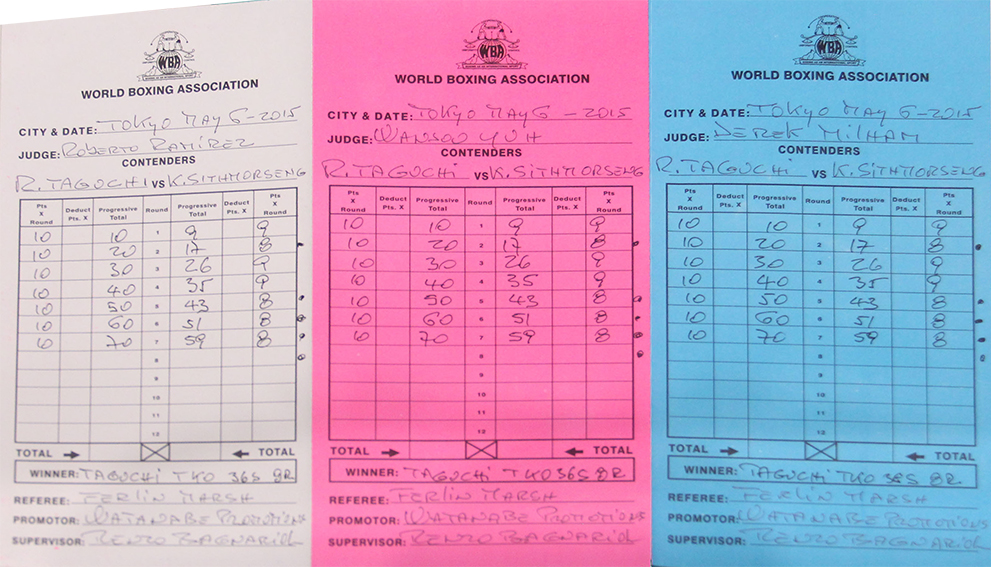 WBA
WORLD BOXING ASSOCIATION
CITY & DATE: TOKYO MAY 6-2015
JUDGE: ROBERTO RAMÍREZ
CONTENDERS
R. TAGUCHI VS K. SITHMORSENG
Pts X Round Deduct Pts. X Progressive Total Round Progressive Total Deduct Pts. X Pts X Round
10 10 1 9 9
10 20 2 17 8
10 30 3 26 9
10 40 4 35 9
10 50 5 43 8
10 60 6 51 8
10 70 7 59 8
8
9
10
11
12
TOTAL TOTAL
WINNER: TAGUCHI TKO 36S 8R.
REFEREE: FERLIN MARSH
PROMOTOR: WATANABE PROMOTIONS
SUPERVISOR: RENZO BAGNARIOL
WBA
WORLD BOXING ASSOCIATION
CITY & DATE: TOKYO MAY 6 - 2015
JUDGE: WANSOO YUH
CONTENDERS
R. TAGUCHI VS K. SITHMORSENG
Pts X Round Deduct Pts. X Progressive Total Round Progressive Total Deduct Pts. X Pts X Round
10 10 1 9 9
10 20 2 17 8
10 30 3 26 9
10 40 4 35 9
10 50 5 43 8
10 60 6 51 8
10 70 7 59 8
8
9
10
11
12
TOTAL TOTAL
WINNER: TAGUCHI TKO 36S 8R.
REFEREE: FERLIN MARSH
PROMOTOR: WATANABE PROMOTIONS
SUPERVISOR: RENZO BAGNARIOL
WBA
WORLD BOXING ASSOCIATION
CITY & DATE: TOKYO MAY 6-2015
JUDGE: DEREK MILHAM
CONTENDERS
R. TAGUCHI VS K. SITHMORSENG
Pts X Round Deduct Pts. X Progressive Total Round Progressive Total Deduct Pts. X Pts X Round
10 10 1 9 9
10 20 2 17 8
10 30 3 26 9
10 40 4 35 9
10 50 5 43 8
10 60 6 51 8
10 70 7 59 8
8
9
10
11
12
TOTAL TOTAL
WINNER: TAGUCHI TKO 36S 8R.
REFEREE: FERLIN MARSH
PROMOTOR: WATANABE PROMOTIONS
SUPERVISOR: RENZO BAGNARIOL